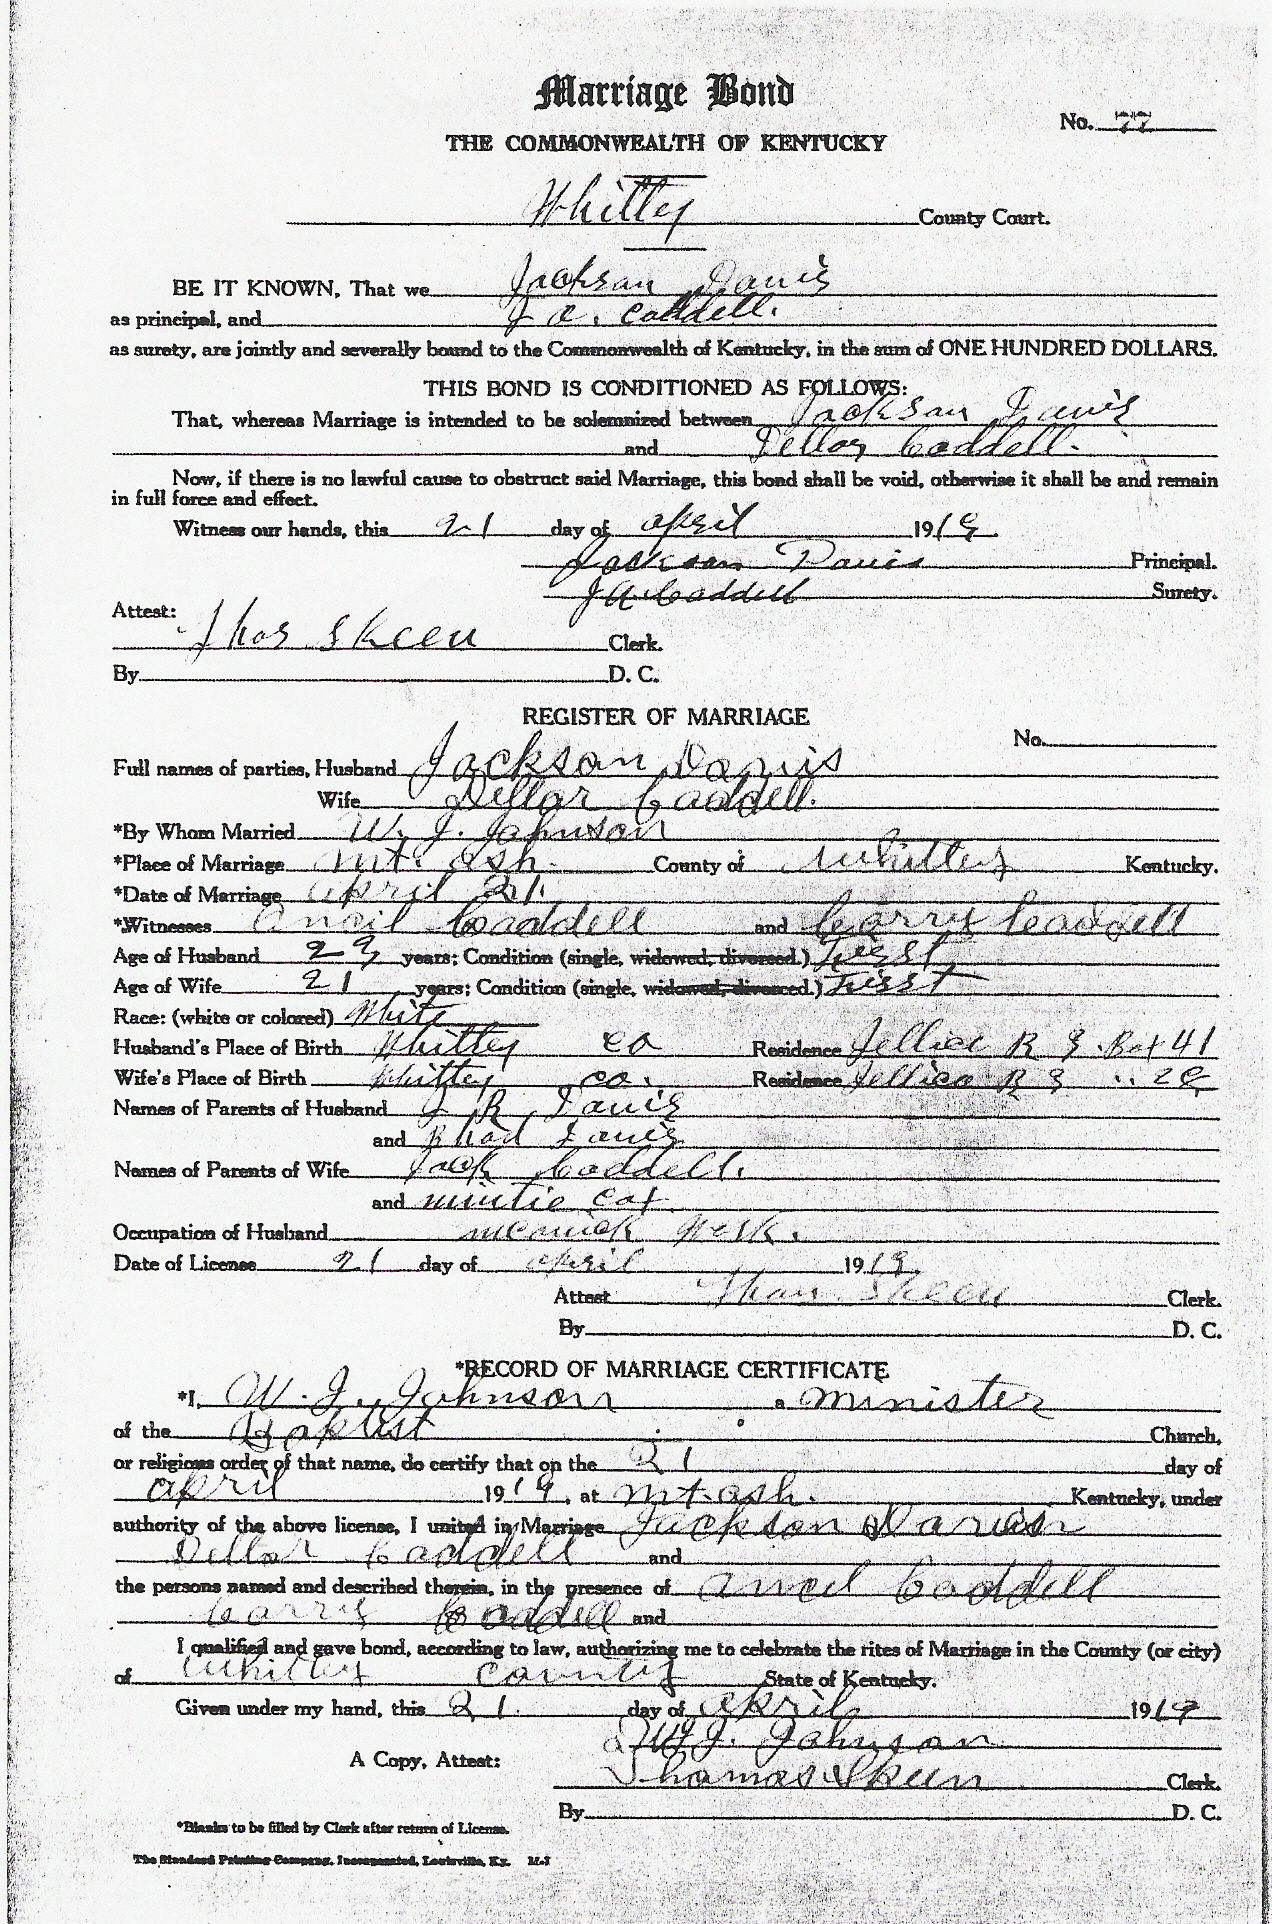 Marriage Bond
No. 77
THE COMMONWEALTH OF KENTUCKY
Whitley County Court.
BE IT KNOWN, That we Jackson Davis
as principal, and J a. Caddell.
as surety, are jointly and severally bound to the Commonwealth of Kentucky, in the sum of ONE HUNDRED DOLLARS.
THIS BOND IS CONDITIONED AS FOLLOWS:
That, whereas Marriage is intended to be solemnized between Jackson Davis
and Dellar Caddell.
Now, if there is no lawful cause to obstruct said Marriage, this bond shall be void, otherwise it shall be and remain
in full force and effect.
Witness our hands, this 21 day of april 1919.
Jackson Davis Principal.
J A Caddell Surety.
Attest:
Thos Skeen Clerk.
By D. C.
REGISTER OF MARRIAGE
No.
Full names of parties, Husband Jackson Davis
Wife Dellar Caddell.
*By Whom Married W. J. Johnson
*Place of Marriage Mt. ash. County of Whitley Kentucky.
*Date of Marriage april 21.
*Witnesses Ancil Caddell and Carry Caddell
Age of Husband 29 years; Condition (single, widowed, divorced.) First
Age of Wife 21 years; Condition (single, widowed, divorced.) First
Race: (white or colored) White
Husband's Place of Birth Whitley co Residence Jellico R 3. Box 41
Wife's Place of Birth Whitley co. Residence Jellico R 3 ..
Names of Parents of Husband J R Davis
and Rhod Davis
Names of Parents of Wife Jack Caddell.
and mintie cox.
Occupation of Husband
Date of License 21 day of april 1919.
Attest Thos. Skeen Clerk.
By D. C.
*RECORD OF MARRIAGE CERTIFICATE
*I, W. J. Johnson a minister
of the Baptist Church,
or religious order of that name, do certify that on the 21 day of
april 1919, at Mt. ash. Kentucky, under
authority of the above license, I united in Marriage Jackson Davis
Dellar Caddell and
the persons named and described therein, in the presence of Ancil Caddell
Carry Caddell and
I qualified and gave bond, according to law, authorizing me to celebrate the rites of Marriage in the County (or city)
of Whitley County State of Kentucky.
Given under my hand, this 21. day of april 1919
W J. Johnson
A Copy, Attest:
Thomas Skeen Clerk.
By D. C.
*Blanks to be filled by Clerk after return of License.
The Standard Printing Company, Incorporated, Louisville, Ky.